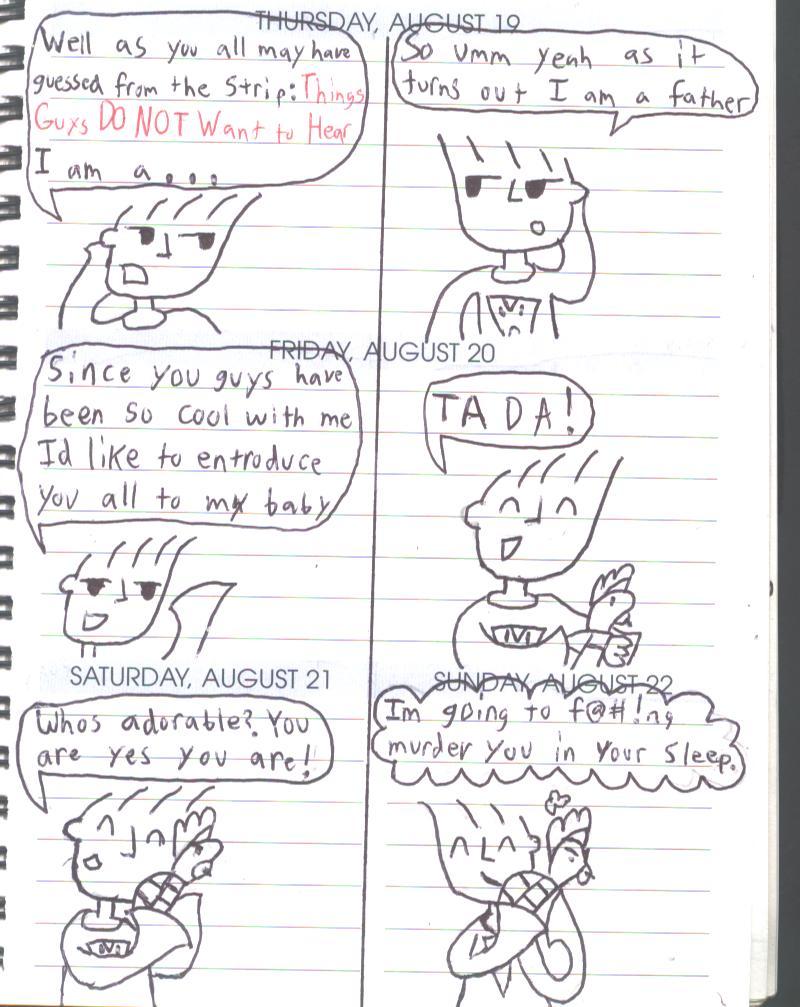 THURSDAY, AUGUST 19
Well as you all may have
guessed from the Strip: Things
Guys DO NOT Want to Hear
I am a...
So Umm yeah as it
turns out I am a father
FRIDAY, AUGUST 20
Since you guys have
been so cool with me
Id like to entroduce
you all to my baby
TA DA!
SATURDAY, AUGUST 21
Whos adorable? You
are yes you are!
SUNDAY, AUGUST 22
Im going to f@#!ng
murder you in your sleep.